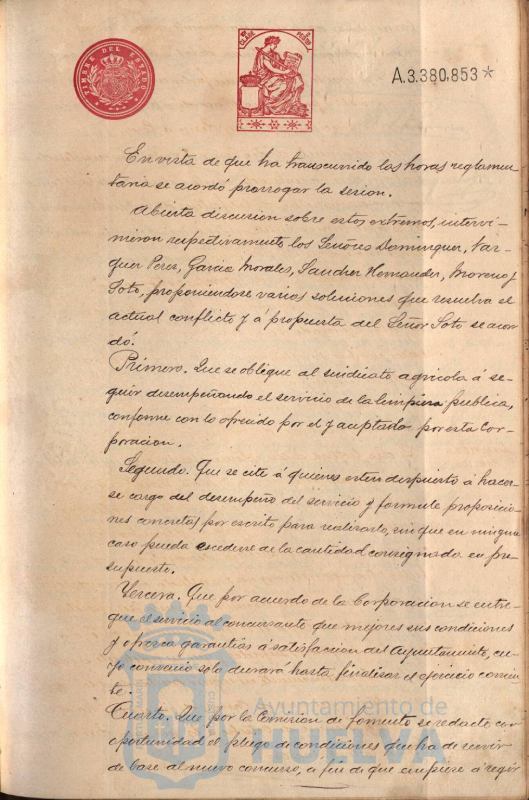 TIMBRE DEL ESTADO
CLASE
A.3.380,853*
En vista de que ha transcurrido las horas reglamen-
taria se acordó prorrogar la sesion.
Abierta discusion sobre estos extremos, intervi-
nieron respectivamente los Señores Dominguez, Vaz-
quez Perez, Garcia Morales, Sanchez Hernandez, Moreno y
Soto, proponiendose varias soluciones que resuelva el
actual conflicto y á propuesta del Señor Soto se acor-
dó.
Primero. Que se oblique al sindicato agricola á se-
guir desempeñando el servicio de la limpieza publica,
conforme con lo ofrecido por el y aceptado por esta Cor-
poracion.
Segundo. Que se cite á quienes esten dispuesto á hacer-
se cargo del desempeño del servicio y formule proposicio-
nes concretas por escrito para realizarlo, sin que en ningun
caso pueda excederse de la cantidad consignada en pre-
supuesto.
Tercera. Que por acuerdo de la Corporacion se entre-
gue el servicio al concursante que mejores sus condiciones
y ofrezca garantias á satisfaccion del Ayuntamiento, cu-
yo convenio solo durará hasta finalizar el ejercicio corrien-
te.
Cuarto. Que por la Comision de fomento se redacte con
oportunidad el pliego de condiciones que ha de servir
de base al nuevo concurso, a fin de que empiese á regir
Ayuntamiento de
HUELVA